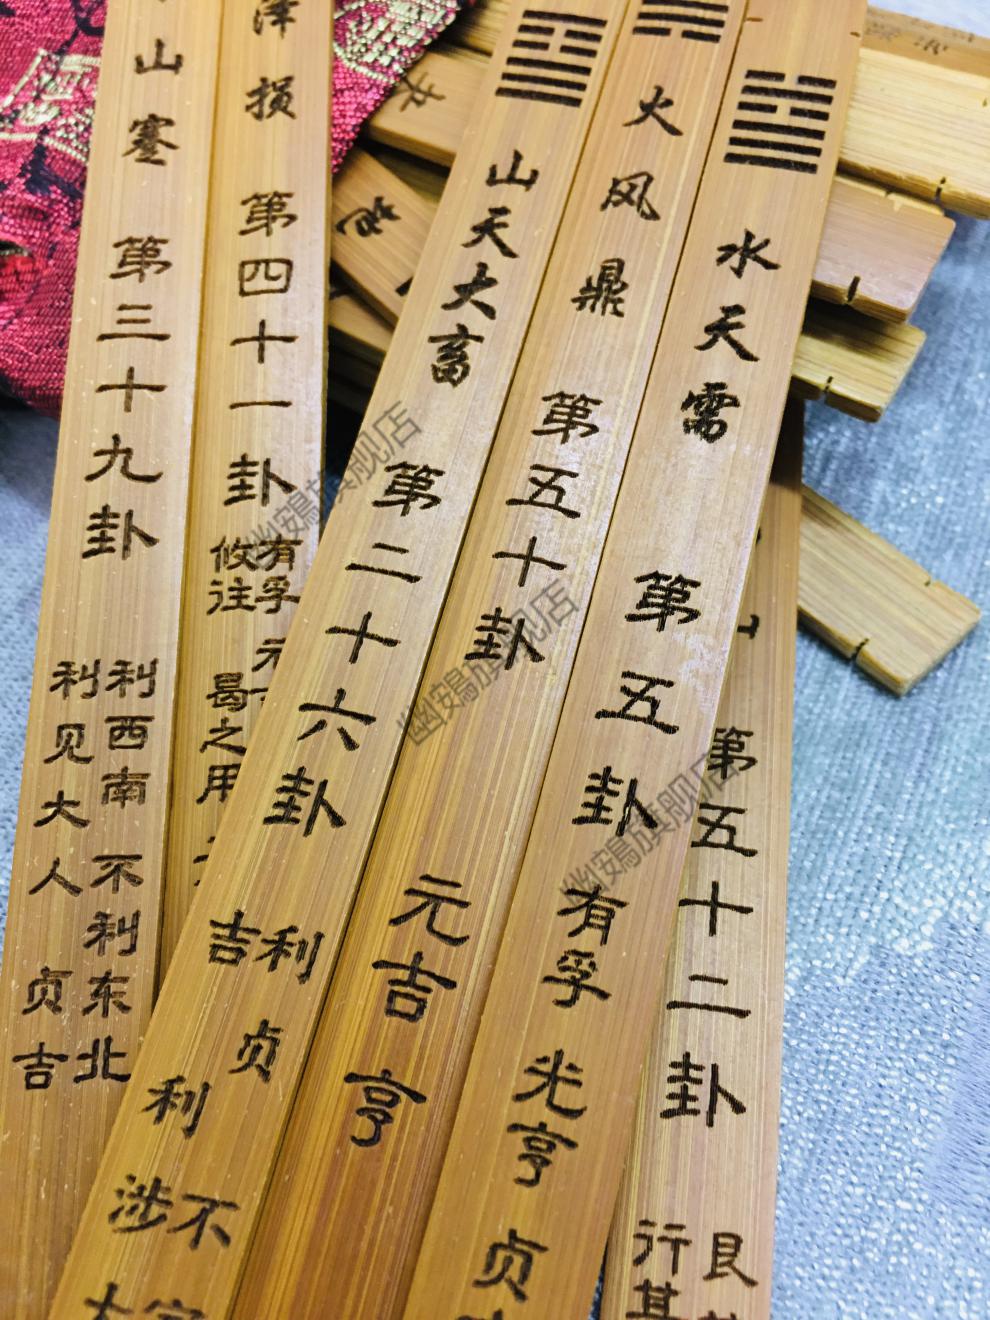 山蹇 第三十九卦
利西南 不利东北
利见大人 贞吉
泽损 第四十一卦
有孚 元
攸往 曷之用
山天大畜 第二十六卦
利贞 不家
吉 利涉大
火风鼎 第五十卦
元吉 亨
水天需 第五卦
有孚 光亨 贞
第五十二卦
艮
行其
幽鵺旗舰店
幽鵺旗舰店
幽鵺旗舰店